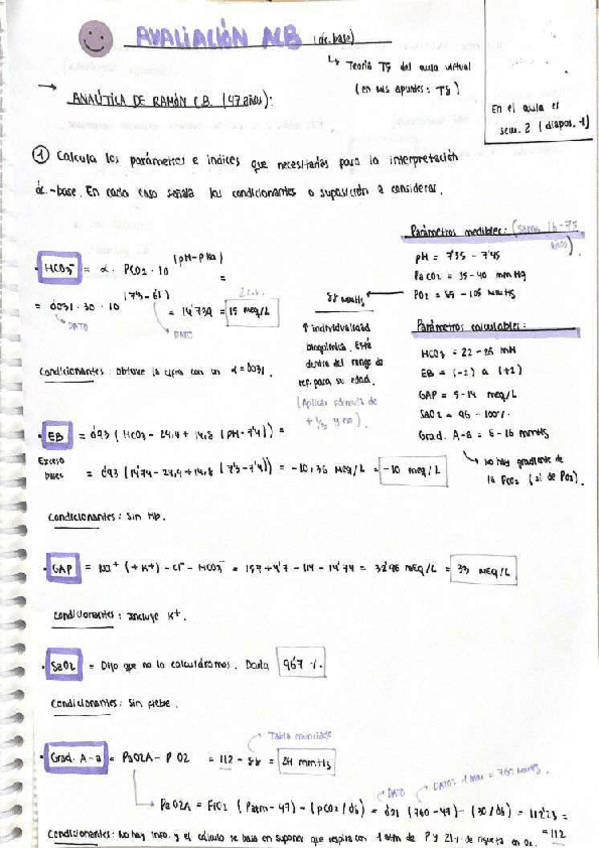 AVALIACIÓN ACB (ác. base)
↳ Teoría T8 del aula virtual
(en mis apuntes: T8)
En el aula es
sem. 2 (diapos. 1)
→ ANALÍTICA DE RAMÓN C.B. (47 años):
① Calcula los parámetros e índices que necesitarías para la interpretación
ác.-base. En cada caso señala los condicionantes o suposición a considerar.
Parámetros medibles:
pH = 7'35 - 7'45
PaCO2 = 35-40 mmHg
PO2 = 85 - 105 mmHg
Parámetros calculables:
HCO3 = 22 - 26 mM
EB = (-2) a (+2)
GAP = 5-14 meq/L
SaO2 = 95 - 100%.
Grad. A-a = 5-15 mmHg
↳ No hay gradiente de
la PCO2 (sí de PO2).
· HCO3⁻ = α · PCO2 · 10 (pH-pKa) =
= 0'031 · 30 · 10 (7'3 - 6'1) = 14'739 = 15 meq/L
DATO
DATO
88 mmHg
↑ individualidad
bioquímica. Está
dentro del rango de
ref. para su edad.
(Aplicas fórmula de
Condicionantes: Obtuve la cifra con un α = 0'031.
· EB = 0'93 (HCO3 - 24,4 + 14,8 (pH - 7'4)) =
Exceso
bases
= 0'93 (14'74 - 24,4 + 14,8 (7'3 - 7'4)) = -10,36 meq/L = -10 meq/L
Condicionantes: Sin Hb.
· GAP = Na⁺ (+ K⁺) - Cl⁻ - HCO3⁻ = 157 + 4'7 - 114 - 14'74 = 32'96 mEq/L = 33 mEq/L
Condicionantes: Incluye K⁺.
· SaO2 = Dijo que no la calculáramos. Daría 96'7 %.
Condicionantes: Sin fiebre.
Tabla enunciado
· Grad. A-a = PaO2A - P O2 = 112 - 88 = 24 mmHg
DATO
DATO: 1 atm = 760 mmHg.
↳ PaO2A = FiO2 (Patm - 47) - (pCO2 / 0'8) = 0'21 (760 - 47) - (30 / 0'8) = 112'23 =
= 112
Condicionantes: No hay info. y el cálculo se basa en suponer que respira con 1 atm de P y 21% de riqueza en O2.